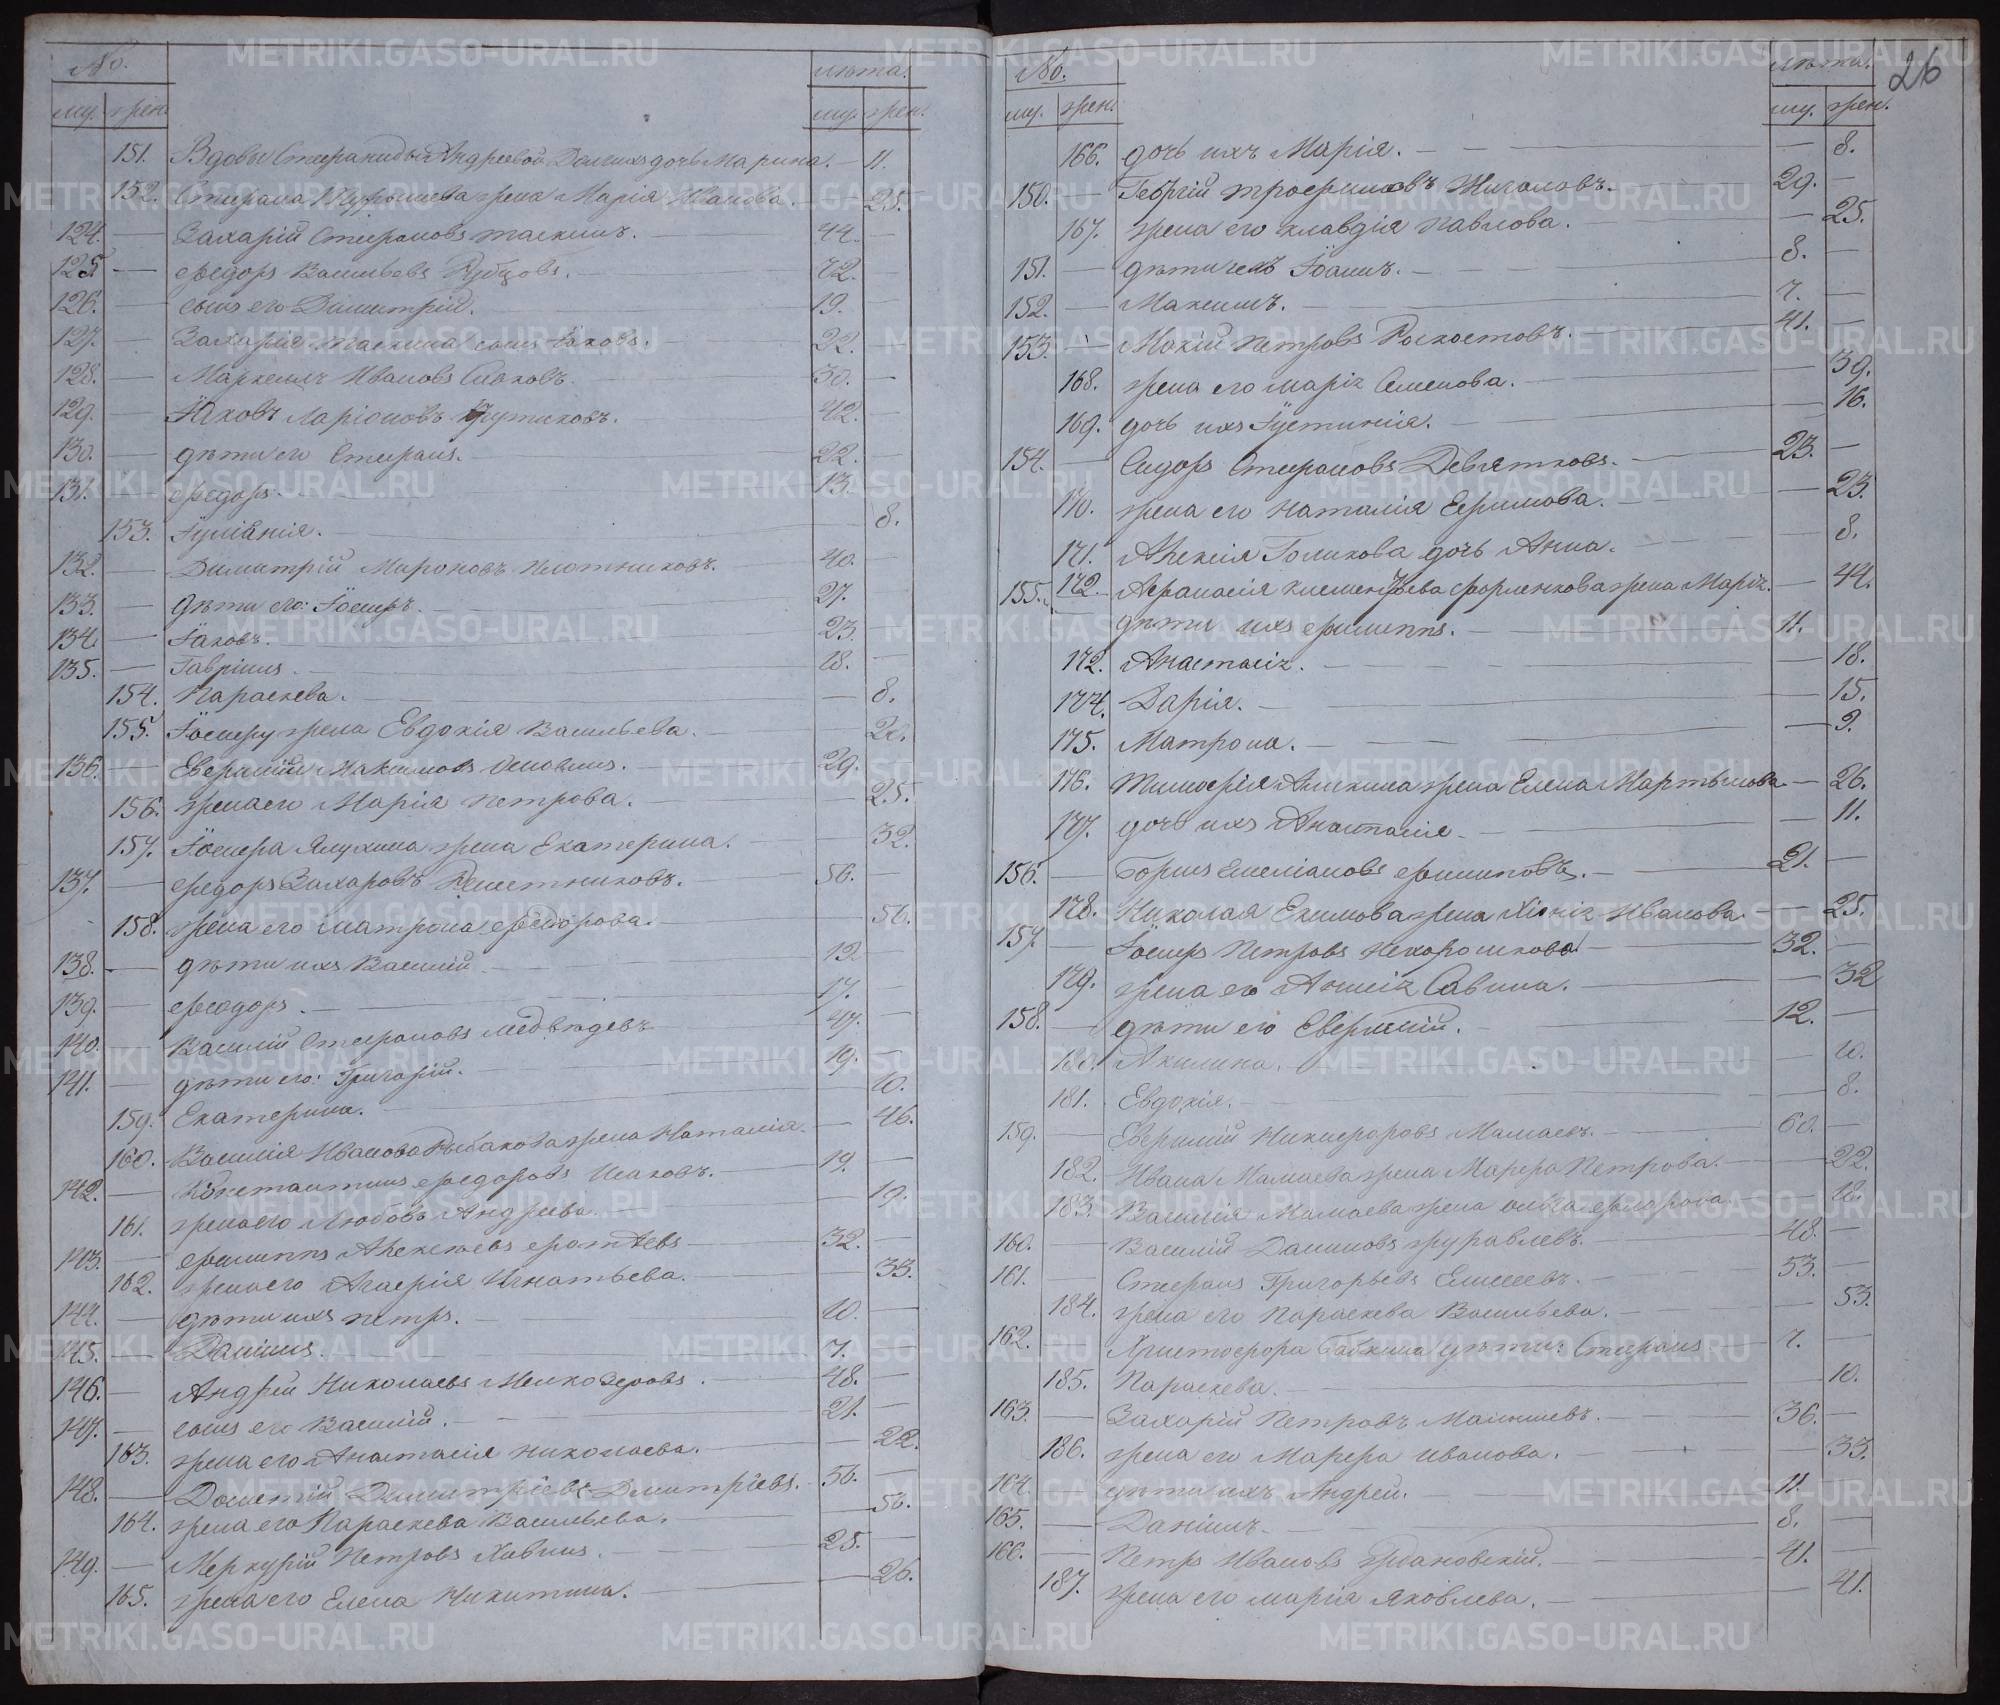 No. лѣта.
му. жен. му. жен.
151. Вдовы Стефаниды Андреевой дочь Марина. — 11.
152. Стефана жена Марія Иванова. — 25.
124. — Захарій Стефановъ Таскинъ. — 44. —
125 — Федоръ Васильевъ Рубцовъ. — 72. —
126. — сынъ его Димитрій. 19. —
127. — Захарія Таскина сынъ Іаковъ. 22. —
128. — Маркеллъ Ивановъ 30. —
129. — Іаковъ Ларіоновъ 42. —
130. — дѣти его Стефанъ. — 22. —
131. — Федоръ. — 13. —
153. Іуліанія. — 8.
132. — Димитрій Мироновъ Плотниковъ. 40. —
133. — Дѣти его: Іосифъ. 27. —
134. — Іаковъ. — 23. —
135. — Гавріилъ. — 18. —
154. Параскева. — — 8.
155. Іосифу жена Евдокія Васильева. —
136. — Евфимій Максимовъ 29. —
156. жена его Марія Петрова. — 25.
157. Іосифа жена Екатерина. — 32.
137. — Федоръ Захаровъ Решетниковъ. 56. —
158. жена его Матрона Федорова. — 56.
138. — дѣти ихъ Василій — 19. —
139. — Феодоръ. — 17. —
140. — Василій Стефановъ Медвѣдевъ 47. —
141. — дѣти его: Григорій. — 19. —
159. Екатерина. — 10.
160. Василія Иванова Рыбакова жена Наталія. — 46.
142. — Константинъ Федоровъ Исаковъ. — 19. —
161. жена его Любовь Андреева. — 19.
143. — Филиппъ Алексѣевъ 32. —
162. жена его Агафія Игнатьева. — 33.
144. — дѣти ихъ Петръ. — 10. —
145. — Даніилъ. — 7. —
146. — Андрей Николаевъ Мелкозеровъ. — 48. —
147. — сынъ его Василій. — 21. —
163. жена его Анастасія Николаева. — 22.
148. — Дометій Димитріевъ Димитріевъ. — 56. —
164. жена его Параскева Васильева. — 56.
149. — Меркурій Петровъ 25. —
165. жена его Елена Никитина. — 26.
26
No. лѣта.
му. жен. му. жен.
166. дочь ихъ Марія. — — 8.
150. — Георгій Трофимовъ Жигаловъ. — 29. —
167. жена его Клавдія Павлова. — 25.
151. — дѣти ихъ Іоаннъ. — 8. —
152. — Максимъ. — 7. —
153. — Мокій Петровъ 41. —
168. жена его Марія Семенова. — 39.
169. дочь ихъ Іустинія. — 16.
154. — Сидоръ Стефановъ Девятковъ. — 23. —
170. жена его Наталія Ефимова. — 23.
171. Алексія Голикова дочь Анна. — 8.
155. 172. Афанасія Климентьева жена Марія. — 44.
дѣти ихъ Филиппъ. — 11.
172. Анастасія. — 18.
174. Дарія. — 15.
175. Матрона. — 9.
176. Тимофея жена Елена Мартынова — 26.
177. дочь ихъ Анастасія — 11.
156. — Емеліановъ Филиповъ. — 21. —
178. Николая Екимова жена Хіонія Иванова — 25.
157. — Іосифъ Петровъ Нехорошковъ — 32. —
179. жена его Савина. — 32
158. — дѣти его Евфимій. — 12. —
180. Акилина. — 10.
181. Евдокія. — 8.
159. — Евфимій Никифоровъ Мамаевъ. — 60. —
182. Ивана Мамаева жена Марфа Петрова. — 22.
183. Василія Мамаева жена Ольга — 18.
160. — Василій Даниловъ Журавлевъ. — 48. —
161. Стефанъ Григорьевъ Елисеевъ. — 53. —
184. жена его Параскева Васильева. — 53.
162. — Христофора Бабкина дѣти: Стефанъ — 7. —
185. Параскева. — 10.
163. — Захарій Петровъ — 36. —
186. жена его Марфа Иванова. — 33.
164. — дѣти ихъ Андрей. — 11. —
165. — Даніилъ. — 8. —
166. — Петръ Ивановъ Ждановскій. — 41. —
187. жена его Марія Яковлева. — 41.
METRIKI.GASO-URAL.RU